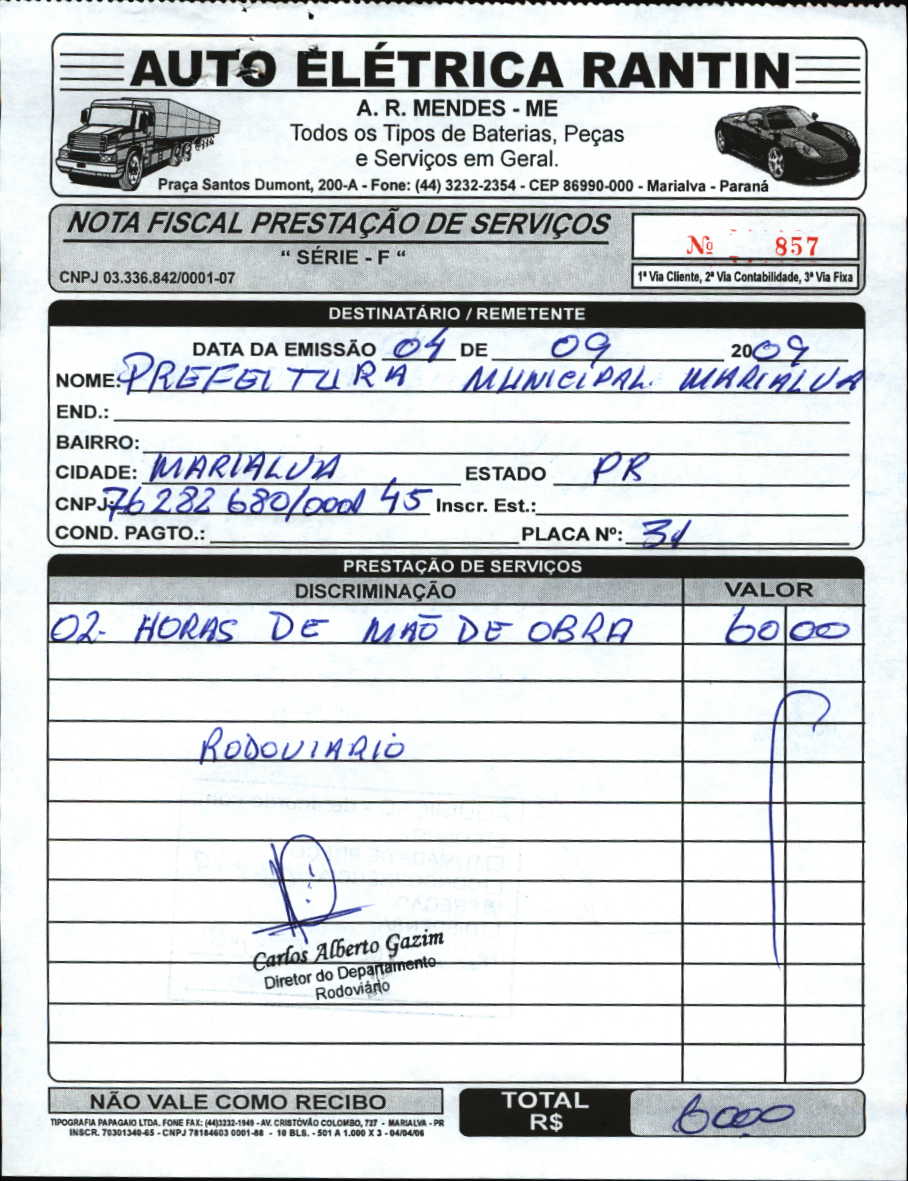 AUTO ELÉTRICA RANTIN
A. R. MENDES - ME
Todos os Tipos de Baterias, Peças
e Serviços em Geral.
Praça Santos Dumont, 200-A - Fone: (44) 3232-2354 - CEP 86990-000 - Marialva - Paraná
NOTA FISCAL PRESTAÇÃO DE SERVIÇOS
“ SÉRIE - F “
Nº 857
CNPJ 03.336.842/0001-07
1ª Via Cliente, 2ª Via Contabilidade, 3ª Via Fixa
DESTINATÁRIO / REMETENTE
DATA DA EMISSÃO 04 DE 09 2009
NOME: PREFEITURA MUNICIPAL. MARIALVA
END.:
BAIRRO:
CIDADE: MARIALVA ESTADO PR
CNPJ: 76 282 680/0001 45 Inscr. Est.:
COND. PAGTO.: PLACA Nº: 31
PRESTAÇÃO DE SERVIÇOS
DISCRIMINAÇÃO VALOR
02- HORAS DE MÃO DE OBRA 60 00
RODOVIARIO
Carlos Alberto Gazim
Diretor do Departamento
Rodoviário
NÃO VALE COMO RECIBO
TOTAL
R$ 6000
TIPOGRAFIA PAPAGAIO LTDA. FONE FAX: (44)3232-1949 - AV. CRISTÓVÃO COLOMBO, 727 - MARIALVA - PR
INSCR. 70301340-65 - CNPJ 78184603 0001-88 - 10 BLS. - 501 A 1.000 X 3 - 04/04/06